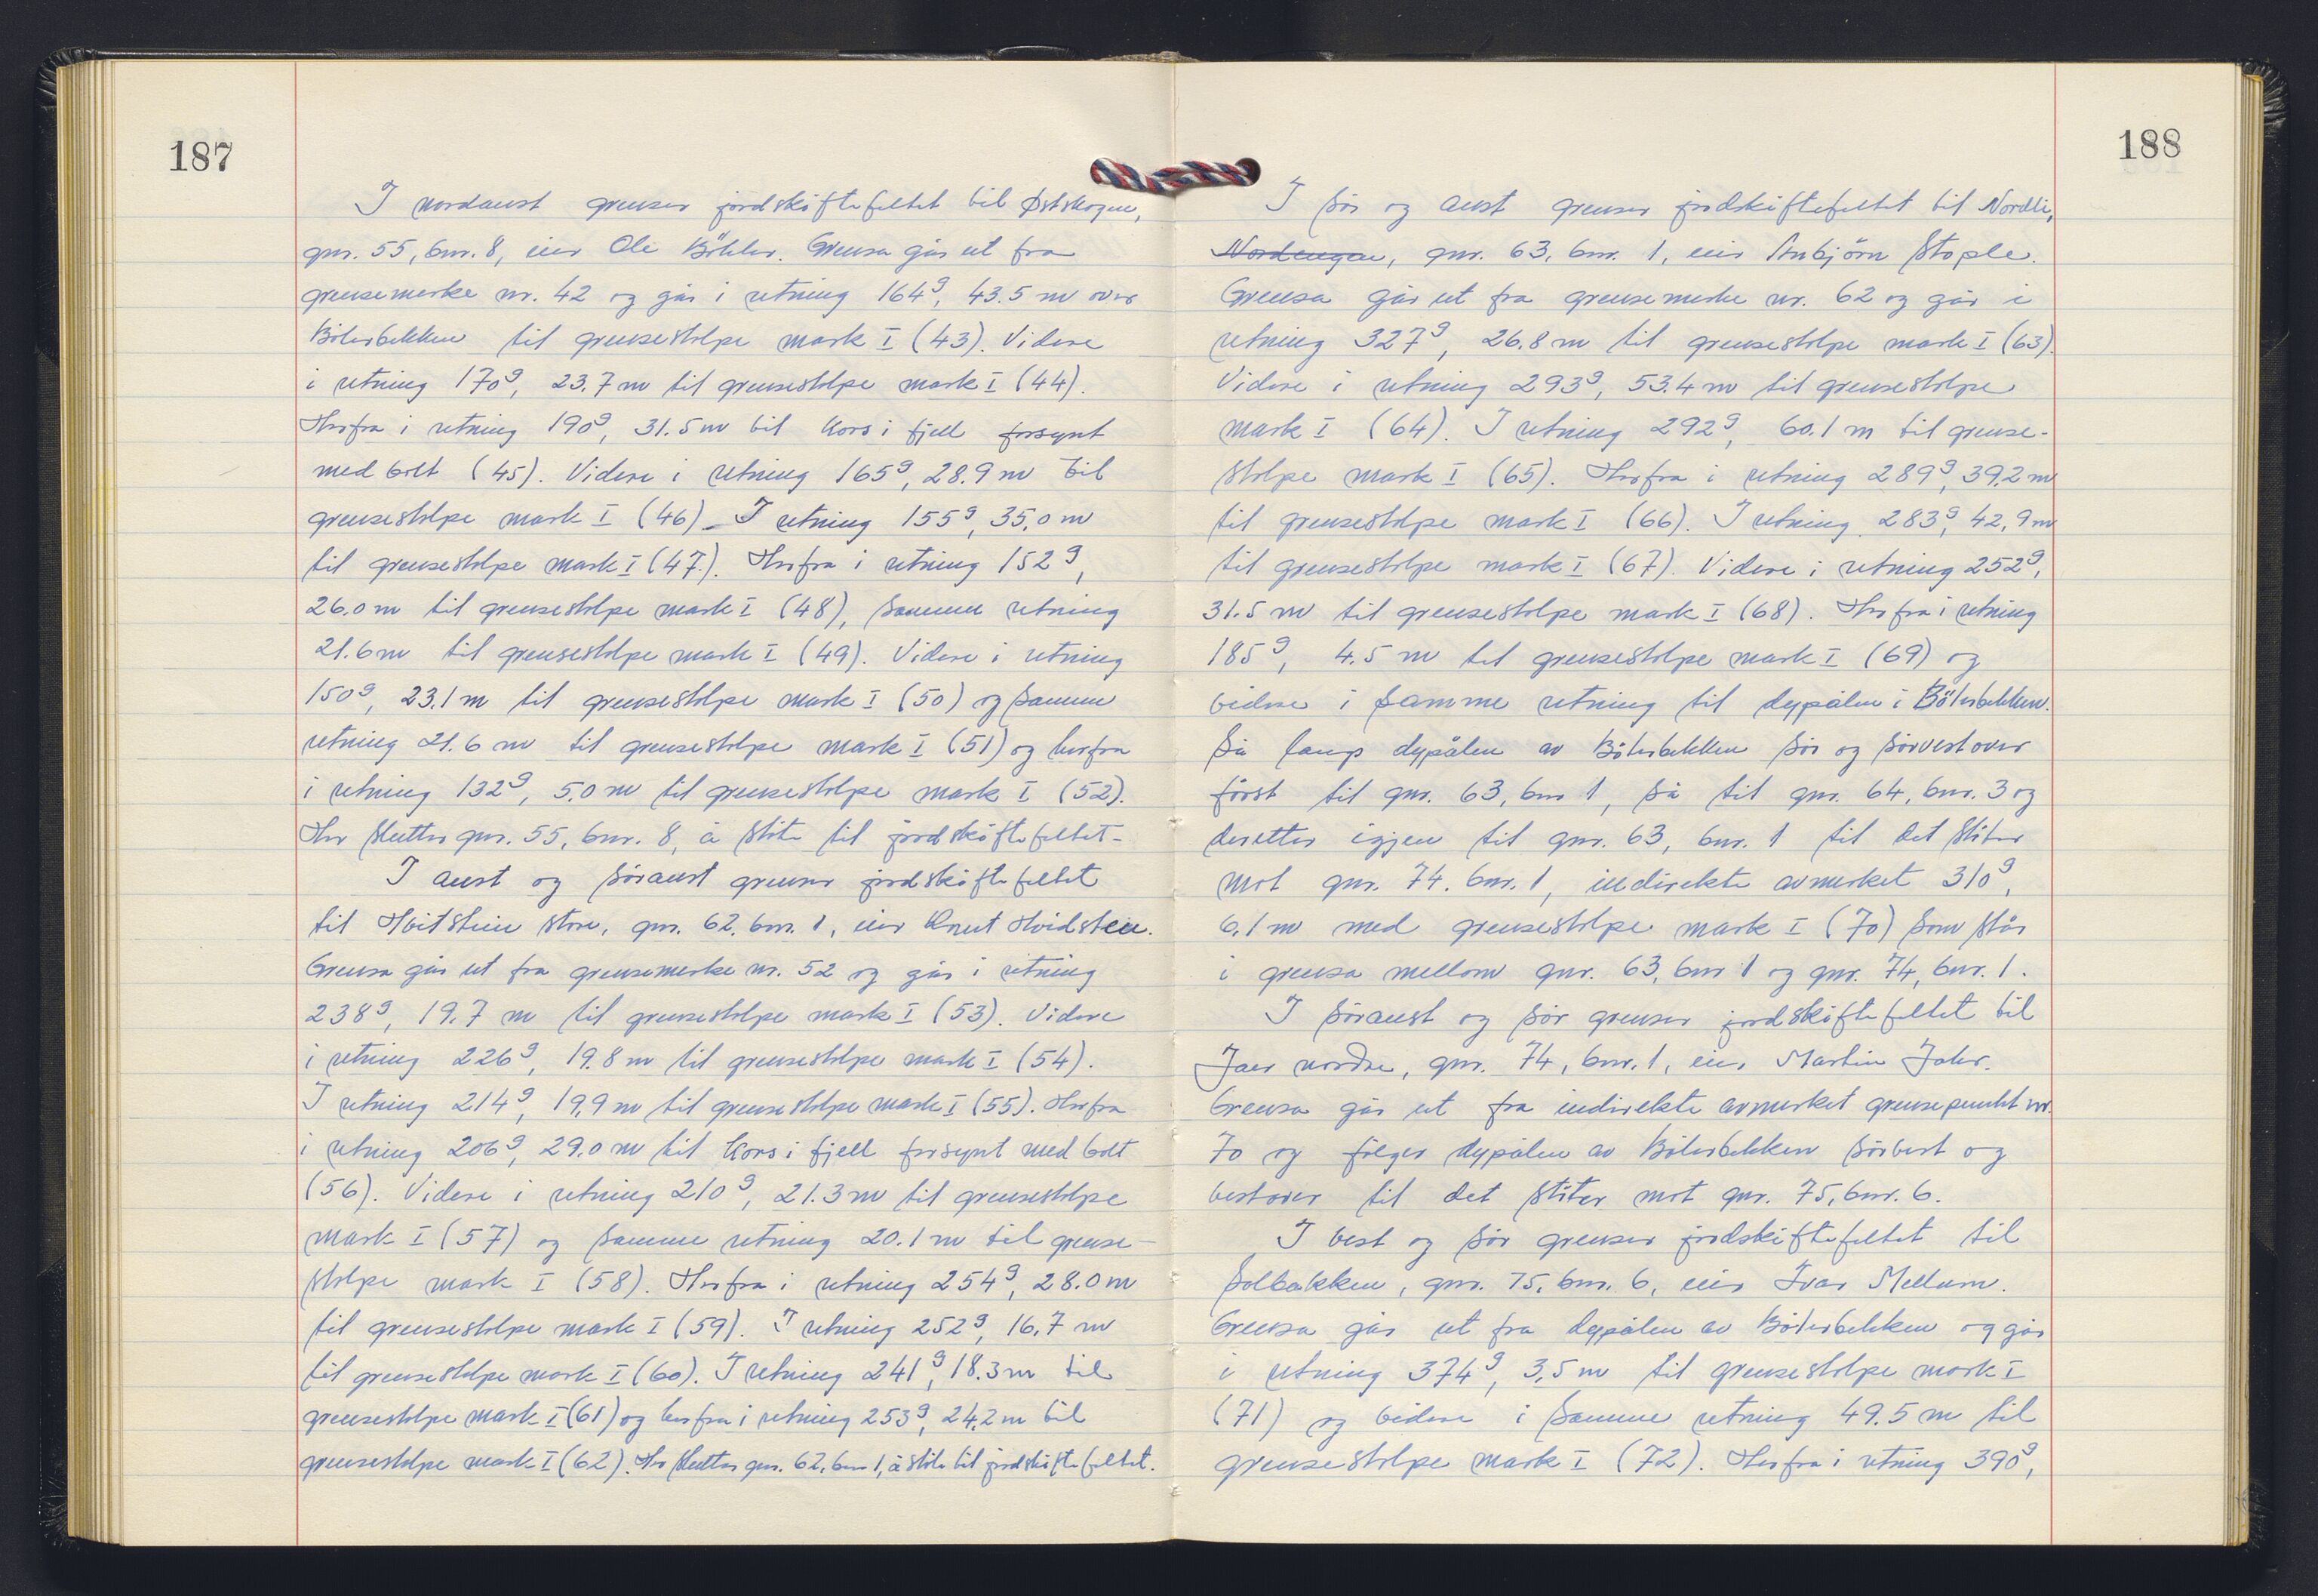 187
I nordaust grenser jordskiftefeltet til Østskogen,
gnr. 55, bnr. 8, eier Ole Böhler. Grensa går ut fra
grensemerke nr. 42 og går i retning 164g, 43.5 m over
Bölerbekken til grensestolpe mark I (43). Videre
i retning 170g, 23.7 m til grensestolpe mark I (44).
Herfra i retning 190g, 31.5 m til kors i fjell forsynt
med bolt (45). Videre i retning 165g, 28.9 m til
grensestolpe mark I (46). I retning 155g, 35.0 m
til grensestolpe mark I (47.). Herfra i retning 152g,
26.0 m til grensestolpe mark I (48), samme retning
21.6 m til grensestolpe mark I (49). Videre i retning
150g, 23.1 m til grensestolpe mark I (50) og samme
retning 21.6 m til grensestolpe mark I (51) og herfra
i retning 132g, 5.0 m til grensestolpe mark I (52).
Her slutter gnr. 55, bnr. 8, å støte til jordskiftefeltet.
I aust og søraust grenser jordskiftefeltet
til Hvitstein store, gnr. 62, bnr. 1, eier Knut Hvidsteen.
Grensa går ut fra grensemerke nr. 52 og går i retning
238g, 19.7 m til grensestolpe mark I (53). Videre
i retning 226g, 19.8 m til grensestolpe mark I (54).
I retning 214g, 19.9 m til grensestolpe mark I (55). Herfra
i retning 206g, 29.0 m til kors i fjell forsynt med bolt
(56). Videre i retning 210g, 21.3 m til grensestolpe
mark I (57) og samme retning 20.1 m til grense-
stolpe mark I (58). Herfra i retning 254g, 28.0 m
til grensestolpe mark I (59). I retning 252g, 16.7 m
til grensestolpe mark I (60). I retning 241g, 18.3 m til
grensestolpe mark I (61) og herfra i retning 253g, 24.2 m til
grensestolpe mark I (62). Her slutter gnr. 62, bnr 1, å støte til jordskiftefeltet.
188
I sör og aust grenser jordskiftefeltet til Nordli,
Nordengen, gnr. 63, bnr. 1, eier Anbjörn Stople.
Grensa går ut fra grensemerke nr. 62 og går i
retning 327g, 26.8 m til grensestolpe mark I (63).
Videre i retning 293g, 53.4 m til grensestolpe
mark I (64). I retning 292g, 60.1 m til grense-
stolpe mark I (65). Herfra i retning 289g, 39.2 m
til grensestolpe mark I (66). I retning 283g, 42,9 m
til grensestolpe mark I (67). Videre i retning 252g,
31.5 m til grensestolpe mark I (68). Herfra i retning
185g, 4.5 m til grensestolpe mark I (69) og
videre i samme retning til dypålen i Bölerbekken.
Så langs dypålen av Bölerbekken sör og sörvestover
först til gnr. 63, bnr 1, så til gnr. 64, bnr. 3 og
deretter igjen til gnr. 63, bnr. 1 til det stöter
mot gnr. 74, bnr. 1, indirekte avmerket 310g,
6.1 m med grensestolpe mark I (70) som står
i grensa mellom gnr. 63, bnr 1 og gnr. 74, bnr. 1.
I söraust og sör grenser jordskiftefeltet til
Jaer nordre, gnr. 74, bnr. 1, eier Martin Jahr.
Grensa går ut fra indirekte avmerket grensepunkt nr.
70 og følger dypålen av Bölerbekken sörvest og
vestover til det stöter mot gnr. 75, bnr. 6.
I vest og sör grenser jordskiftefeltet til
Solbakken, gnr. 75, bnr. 6, eier Ivar Mellum.
Grensa går ut fra dypålen av Bölerbekken og går
i retning 374g, 3,5 m til grensestolpe mark I
(71) og videre i samme retning 49.5 m til
grensestolpe mark I (72). Herfra i retning 390g,